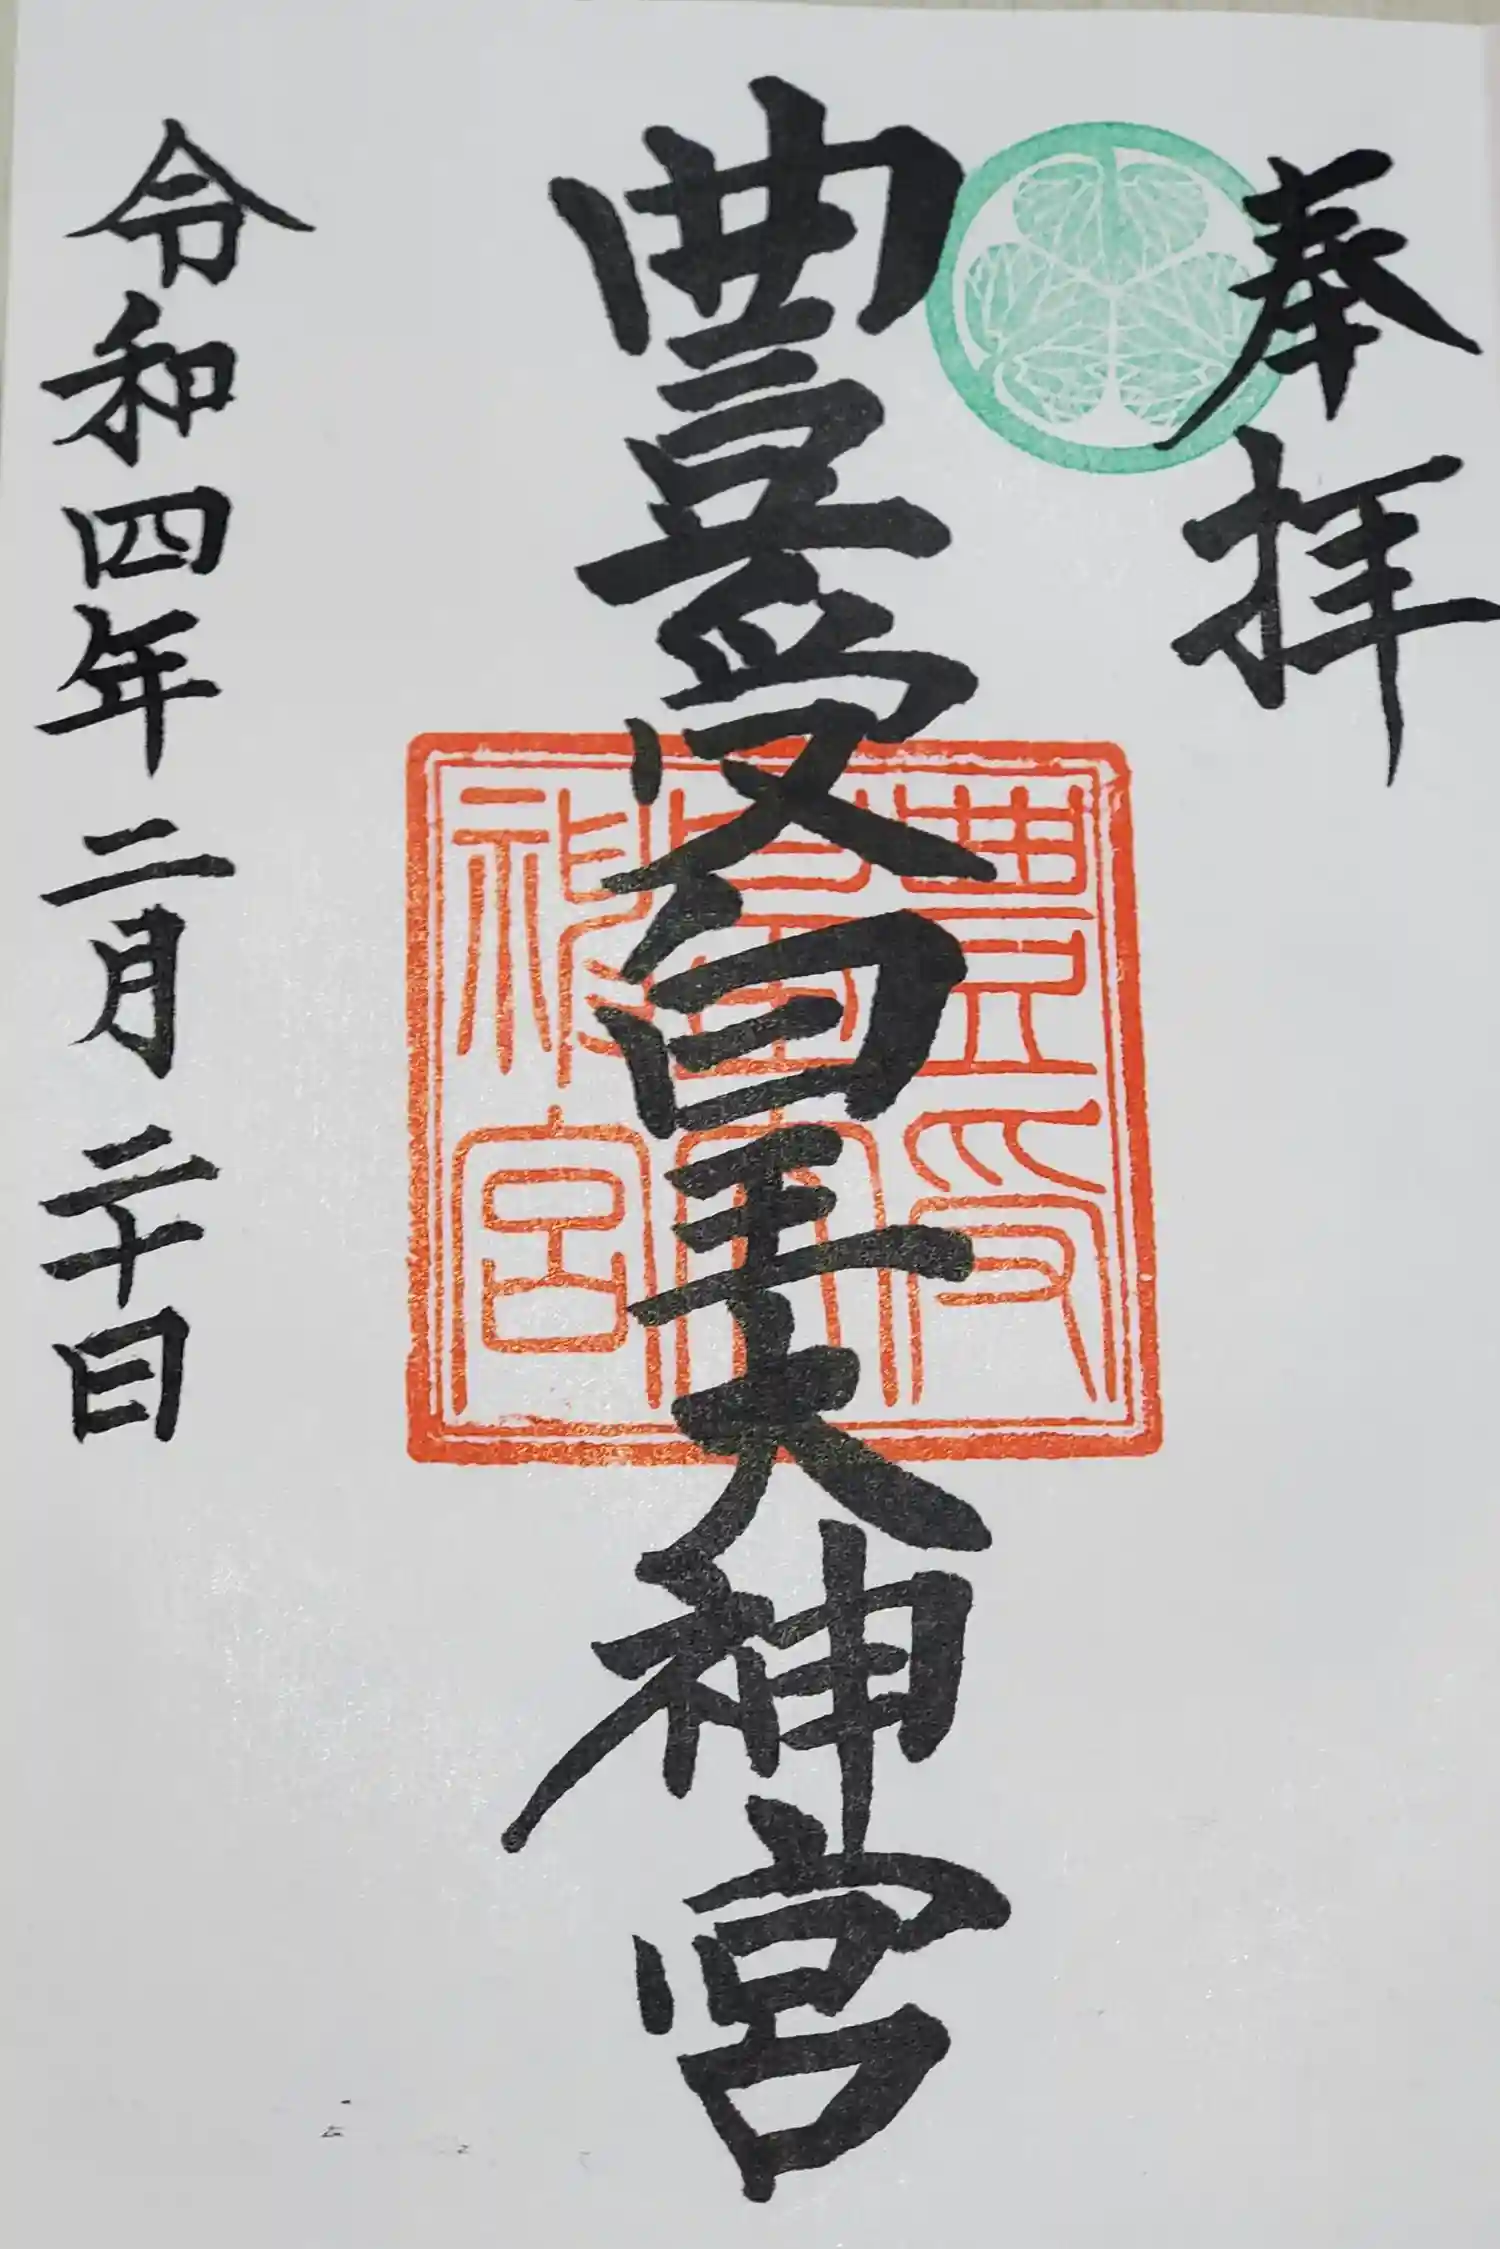 奉拝
豊受皇大神宮
令和四年二月二十日
豊受
皇大
神宮